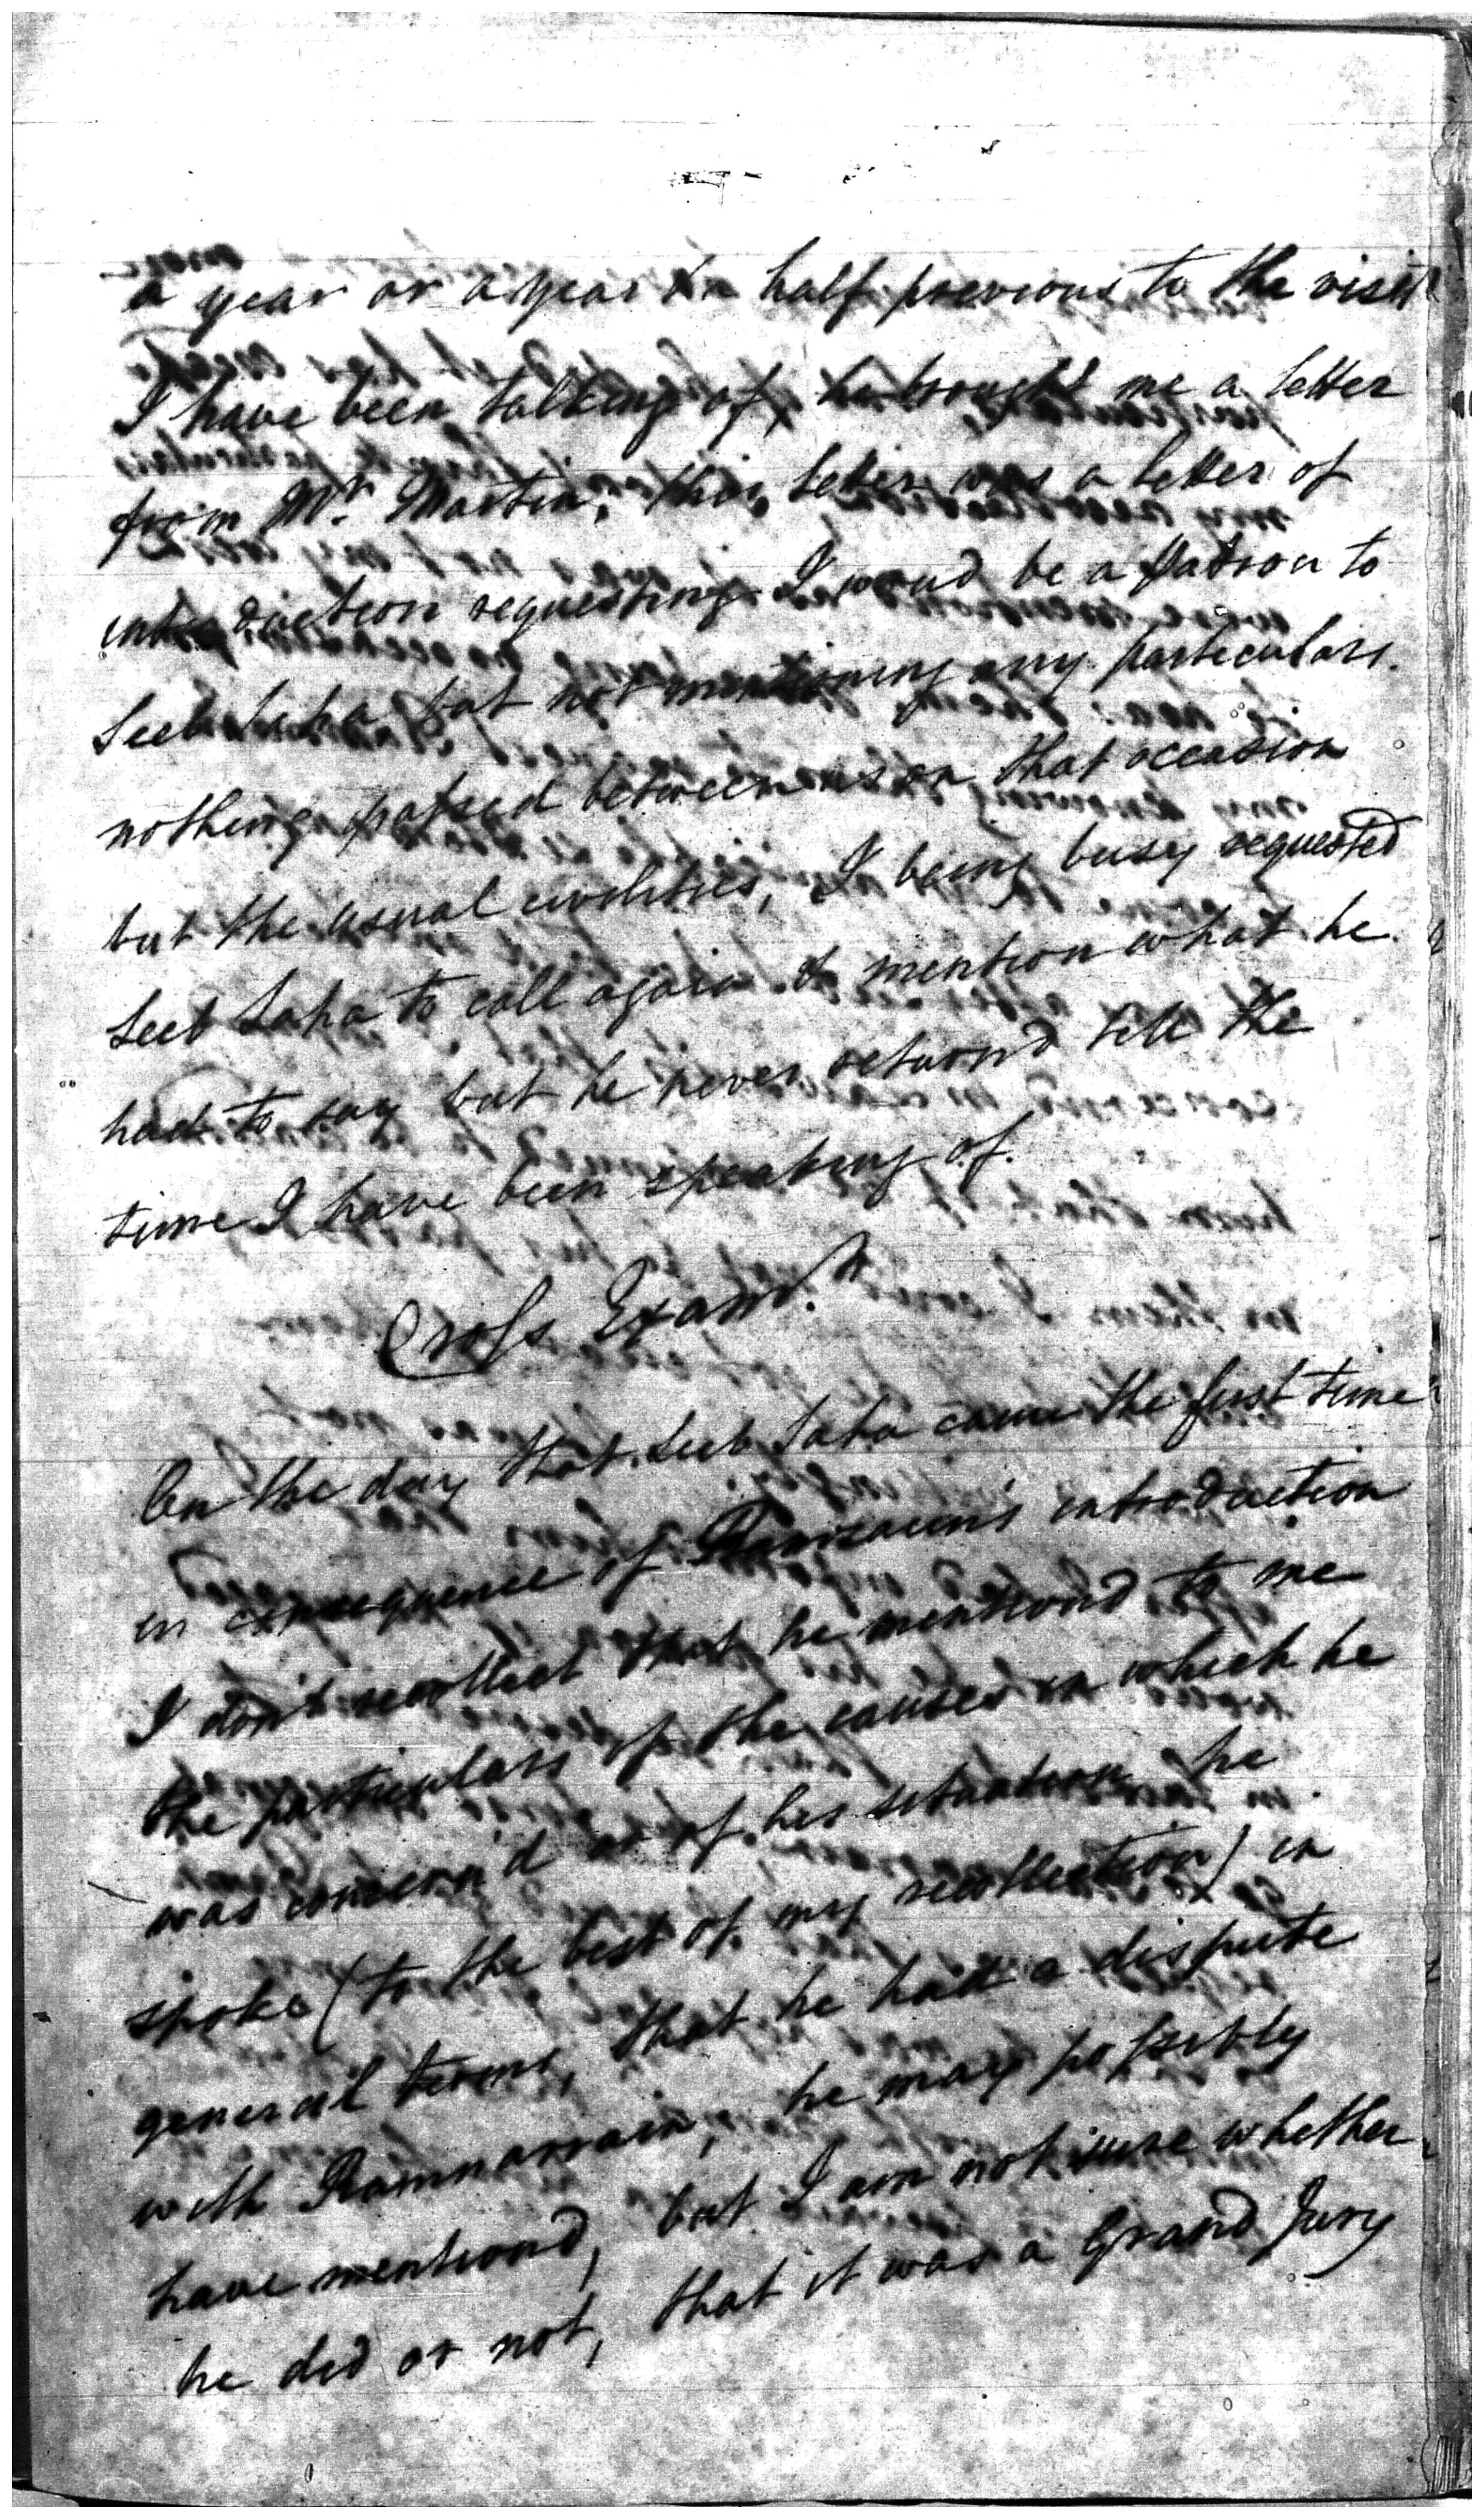 a year or a year & a half previous to the visit
I have been talking of, he brought me a letter
from Mr. Martin, this letter was a letter of
introduction requesting I woud be a Patron to
Seeb Saha but not mentioning any particulars.
nothing passed between us on that occasion
but the usual civilities, I being busy requested
Seeb Saha to call again & mention what he
had to say but he never returnd till the
time I have been speaking of.
Cross Examd.
On the day that Seeb Saha came the first time
in consequence of introduction
I don't recollect that he mentiond to me
the particulars of the causes in which he
was concern'd or of his situation he
spoke (to the best of my recollection) in
general terms, that he had a dispute
with Ramnarrain, he may possibly
have mentiond, but I am not sure whether
he did or not, that it was a Grand Jury